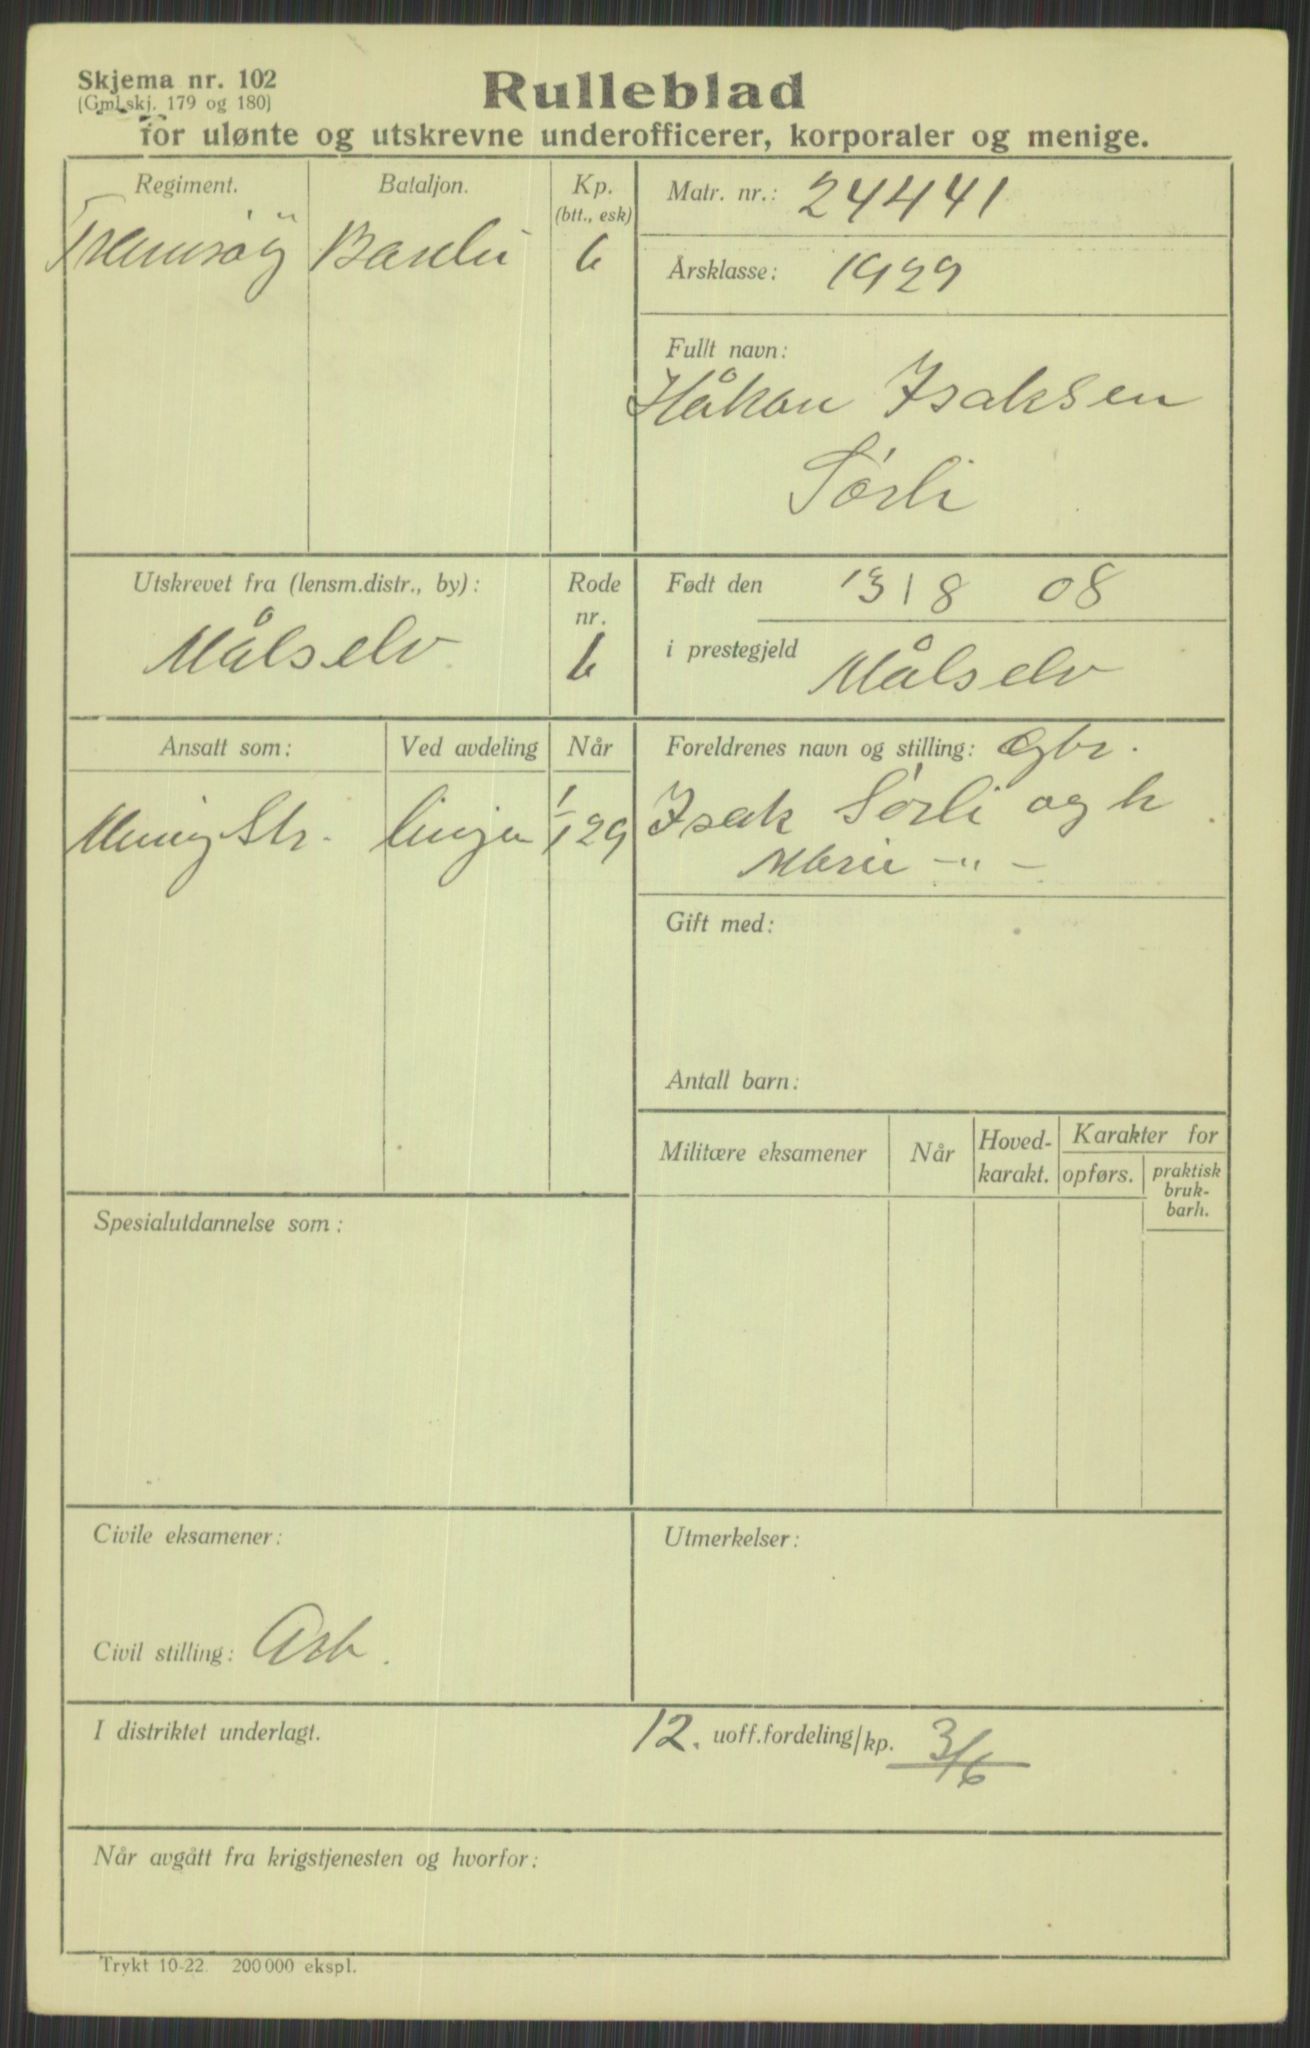 Skjema nr. 102
(Gml. skj. 179 og 180)
Rulleblad
for ulønte og utskrevne underofficerer, korporaler og menige.
Regiment.
Bataljon.
Kp.
(btt., esk)
Bardu
6
Matr. nr.: 24441
Årsklasse: 1929
Fullt navn:
Håkon Isaksen
Sørli
Utskrevet fra (lensm.distr., by):
Målselv
Rode
nr.
6
Født den 13/8 08
i prestegjeld Målselv
Ansatt som:
Ved avdeling
Når
Menig Str.
linjen
1/1 29
Foreldrenes navn og stilling: Gbr.
Isak Sørli og h
Marie -"-
Gift med:
Antall barn:
Militære eksamener
Når
Hoved-
karakt.
Karakter for
opførs.
praktisk
bruk-
barh.
Spesialutdannelse som:
Civile eksamener:
Civil stilling: Arb.
Utmerkelser:
I distriktet underlagt.
12. uoff.fordeling/kp. 3/6
Når avgått fra krigstjenesten og hvorfor:
Trykt 10-22. 200 000 ekspl.